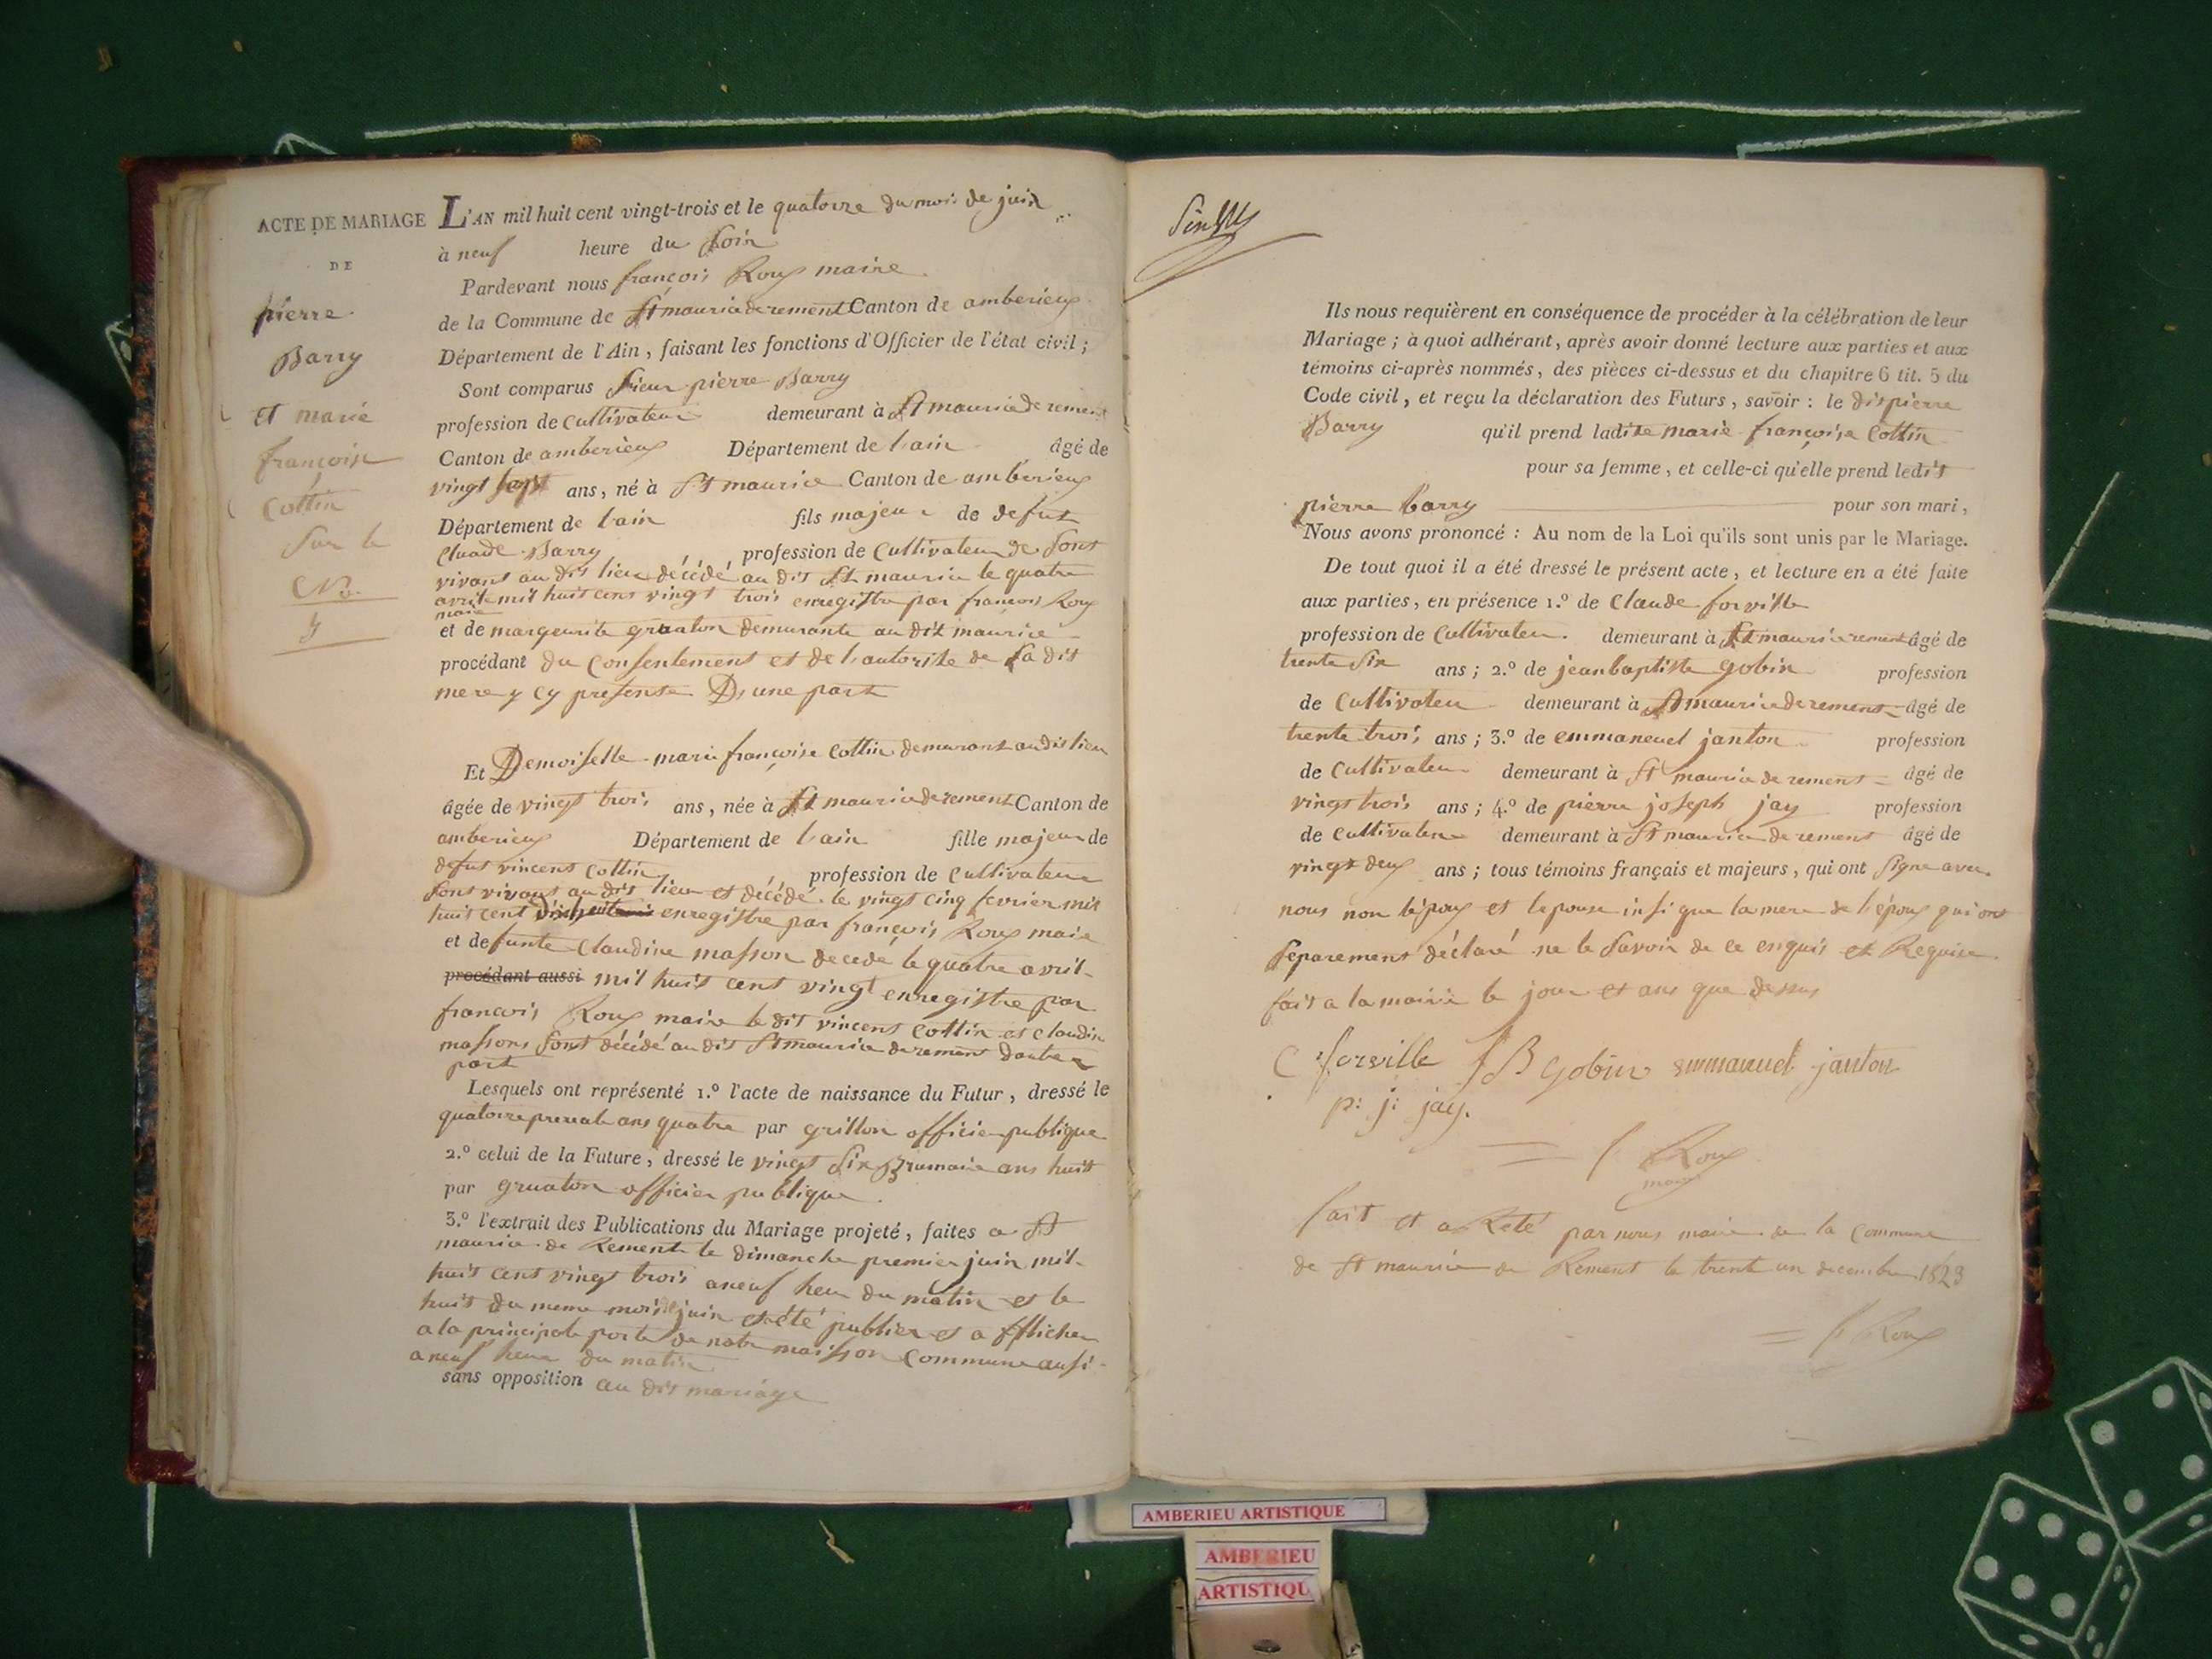 ACTE DE MARIAGE
DE
pierre
Barry
et marie
françoise
Cottin
Sur le
No.
L'AN mil huit cent vingt-trois et le quatorze du mois de juin
à neuf heure du soir
Pardevant nous françois Roux maire
de la Commune de St maurice de remens Canton de amberieux
Département de l'Ain, faisant les fonctions d'Officier de l'état civil ;
Sont comparus Sieur pierre Barry
profession de Cultivateur demeurant à St maurice de remens
Canton de amberieux Département de l'ain âgé de
vingt sept ans, né à St maurice Canton de amberieux
Département de l'ain fils majeur de defut
Cluade Barry profession de Cultivateur de Sont
vivant au dit lieu décédé au dit St maurice le quatre
avril mil huit cens vingt trois enregistre par francois Roux
maire
et de margeurite gruaton demurante au dit maurice
procédant du Consentement et de l'autorite de sa dit
mere y cy presente D'une part
Et Demoiselle marie françoise Cottin demurant au dit lieu
âgée de vingt trois ans, née à St maurice de remens Canton de
amberieux Département de l'ain fille majeur de
defut vincent Cottin profession de Cultivateur
Sont vivant au dit lieu et décédé le vingt cinq fevrier mil
huit cent enregistre par françois Roux maire
et defunte Claudine masson decedé le quatre avril
procédant aussi mil huit cens vingt enregistre par
francois Roux maire le dit vincent Cottin et Claudine
massons sont décédé au dit St maurice de remens dautre
part
Lesquels ont représenté 1.º l'acte de naissance du Futur, dressé le
quatorze ans quatre par grillon officier publique
2.º celui de la Future, dressé le vingt six Brumaire ans huit
par gruaton officier publique
3.º l'extrait des Publications du Mariage projeté, faites a St
maurice de Remens le dimanche premier juin mil
huit cens vingt trois a neuf heur du matin et le
huit du meme mois de juin et été publier et a fflicher
a la principale porte de notre maison Commune ausi
a neuf heur du matin
sans opposition au dit mariage
Ils nous requièrent en conséquence de procéder à la célébration de leur
Mariage ; à quoi adhérant, après avoir donné lecture aux parties et aux
témoins ci-après nommés, des pièces ci-dessus et du chapitre 6 tit. 5 du
Code civil, et reçu la déclaration des Futurs, savoir : le dit pierre
Barry qu'il prend ladite marie françoise Cottin
pour sa femme, et celle-ci qu'elle prend ledit
pierre barry pour son mari,
Nous avons prononcé : Au nom de la Loi qu'ils sont unis par le Mariage.
De tout quoi il a été dressé le présent acte, et lecture en a été faite
aux parties, en présence 1.º de Claude forville
profession de Cultivateur demeurant à St maurice remens âgé de
trente six ans ; 2.º de jean baptiste gobin profession
de Cultivateur demeurant à St maurice de remens âgé de
trente trois ans ; 3.º de emmaneuel janton profession
de Cultivateur demeurant à St maurice de remens âgé de
vingt trois ans ; 4.º de pierre joseph jay profession
de cultivateur demeurant à St maurice de remens âgé de
vingt deux ans ; tous témoins français et majeurs, qui ont signe avec
nous non l'époux et lepouse insi que la mere de l'époux qui ont
separement déclaré ne le savoir de ce enquis et Requise
fait a la mairie le jour et ans que dessus
C forville J B gobin emmanuel janton
p: j: jay.
f Roux
maire
fait et a Reté par nous maire de la Commune
de St maurice de Remens le trente un decembre 1823
f Roux
AMBERIEU ARTISTIQUE
AMBERIEU
ARTISTIQU